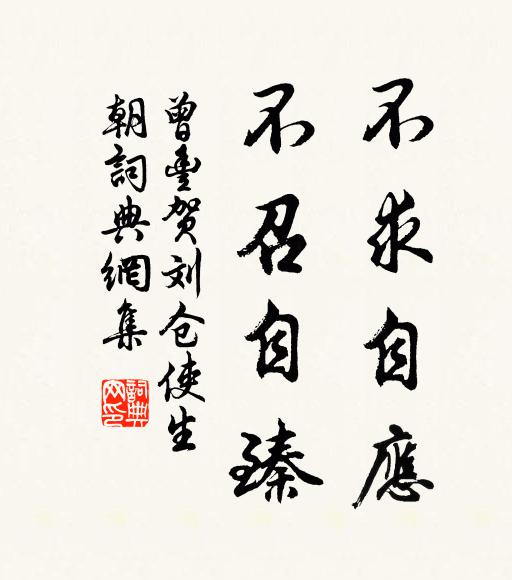 不求自應
不召自臻
曾豊贺刘仓使生
朝詞典網集
詞典
网印